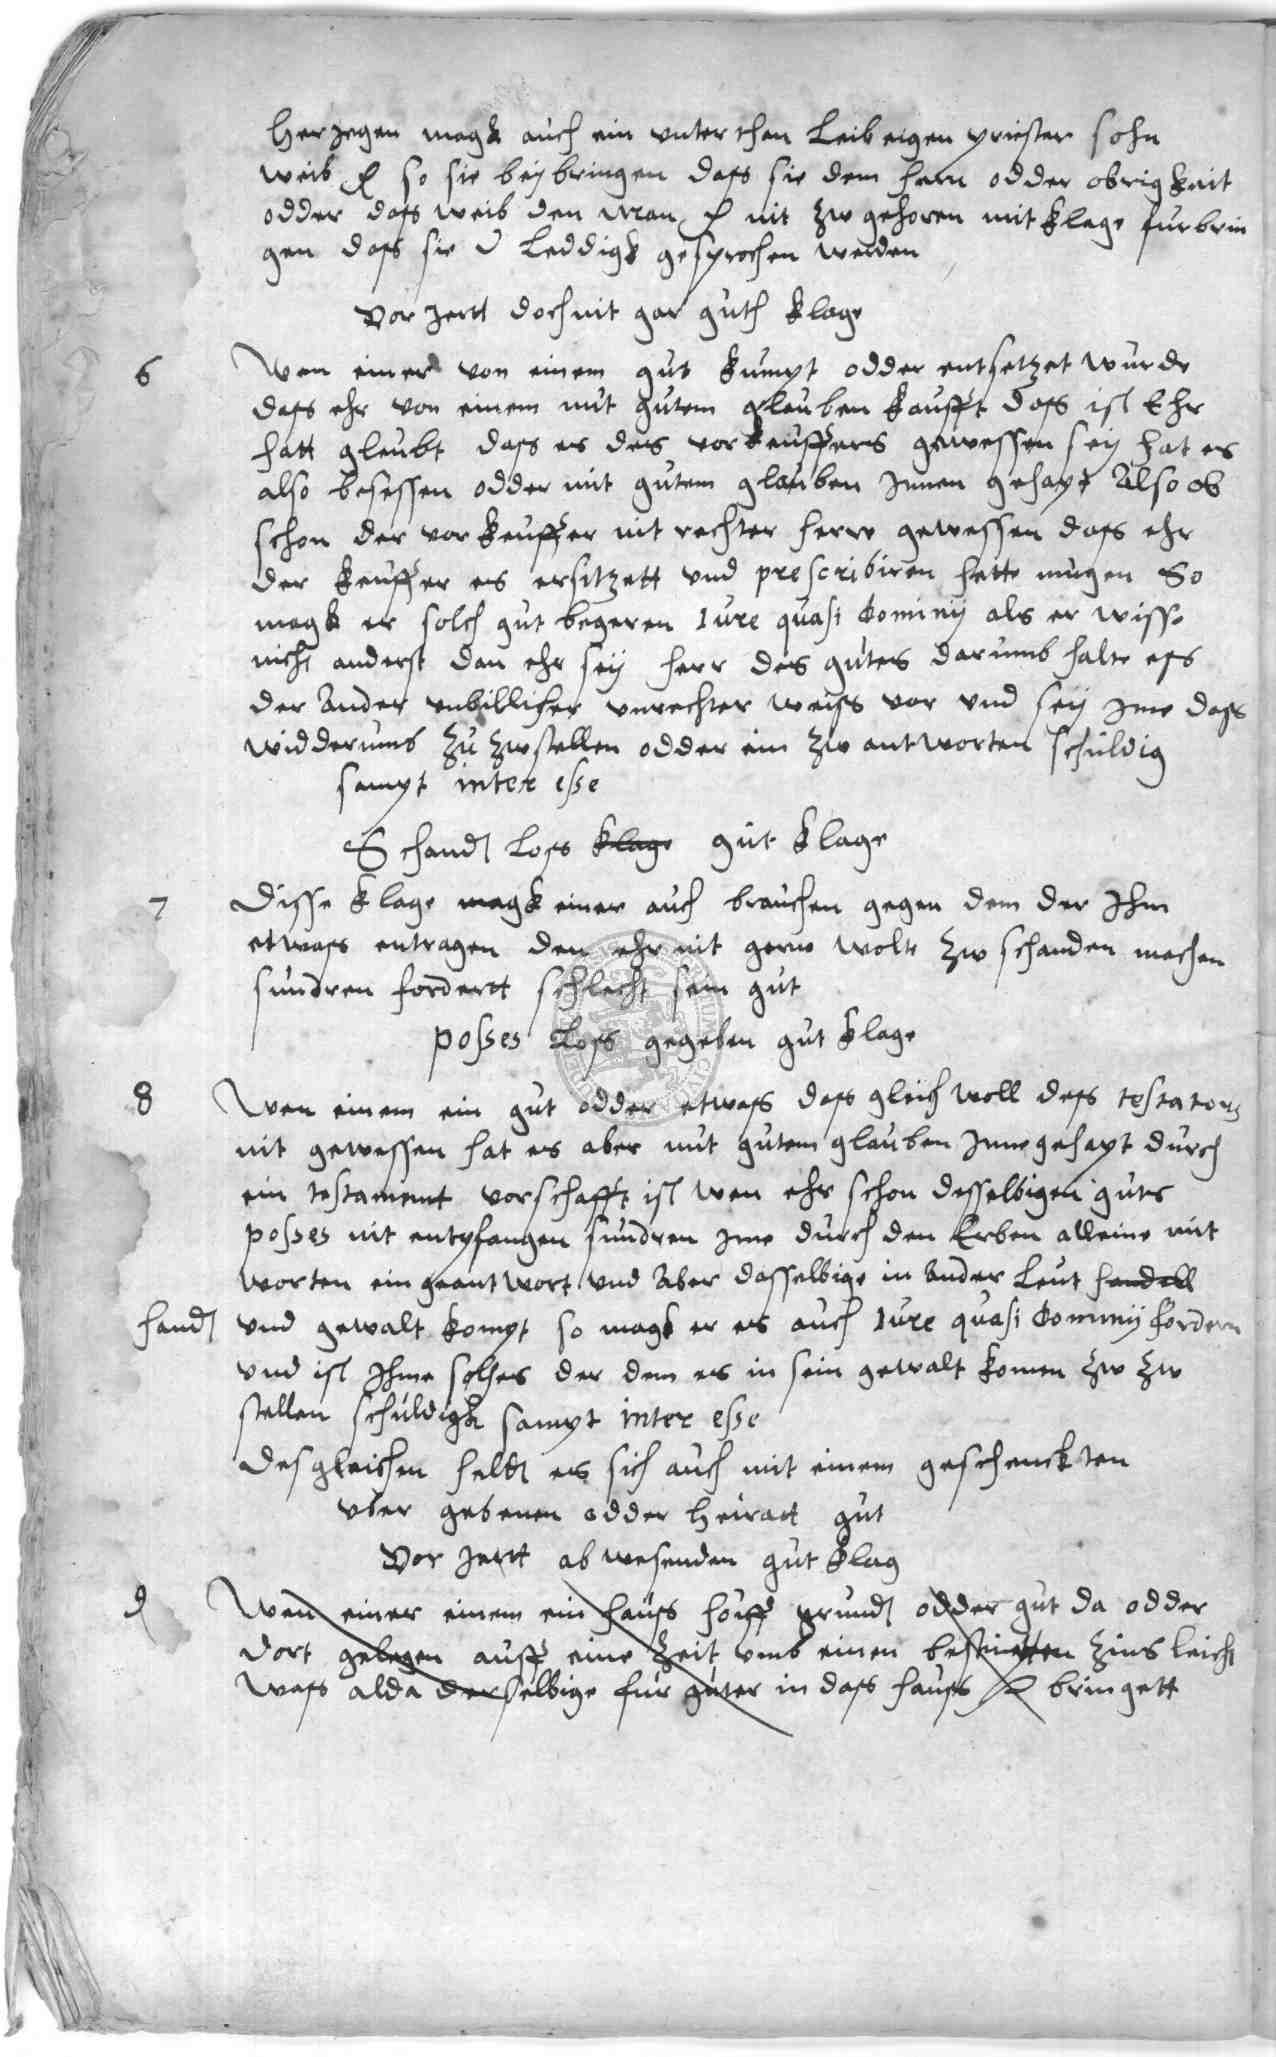 Herzegen magk auch ein unterthan Leibeigen priester sohn
weib so sie beÿbringen dass sie dem hern odder obrigkait
odder dass weib den man nit zw gehoren mit klage furbrin
gen dass sie Leddigk gesprochen werden
Vor jertt doch nit gar guth klage
6 Wen einer von einem gut kumpt odder entsetzet wurde
dass ehr von einem mit gutem glauben kaufft dass ist Ehr
hatt gleubt dass es des vorkeuffers gewessen seÿ hat es
also besessen odder mit gutem glauben Innen gehapt Also ob
schon der vorkeuffer nit rechter herr gewessen dass ehr
der keuffer es ersitzett vnd prescribiren hette mugen So
magk er solch gut begeren Iure quasi dominij als er wisse
nicht anderst dan ehr seÿ herr des gutes darumb halte ess
der Ander vnbillicher vnrechter weiss vor vnd seÿ Ime dass
widderumb zu zwstellen odder ein zw antworten schuldig
sampt inter esse
Schandt Loss klage gut klage
7 Disse klage magk einer auch brauchen gegen dem der Ihm
etwass entragen den ehr nit gerne wolte zw schanden machen
sundren fordertt schlecht sein gut
posses Loss gegeben gut klage
8 Wen einem ein gut odder etwass dass gleich woll dess testators
nit gewessen hat es aber mit gutem glauben Inne gehapt durch
ein testament vorschafft ist wen ehr schon desselbigen guts
posses nit entpfangen sundren Ime durch den Erben alleine mit
worten ein geantwort vnd Aber dasselbige in Ander Leut handell
handt vnd gewalt kompt so magk er es auch Iure quasi dominij fordern
vnd ist Ihme solches der dem es in sein gewalt komen zw zw
stellen schuldigk sampt inter esse
desgleichen heldt es sich auch mit einem geschenckten
vber gebenen odder Heiratt gut
Vor jertt abwesenden gut klag
9 Wen einer einem ein hauss houff grundt odder gut da odder
dort gelegen auff eine Zeit vmb einen bestimpten zins leicht
Wass alda derselbige fur guter in dass hauss bringett